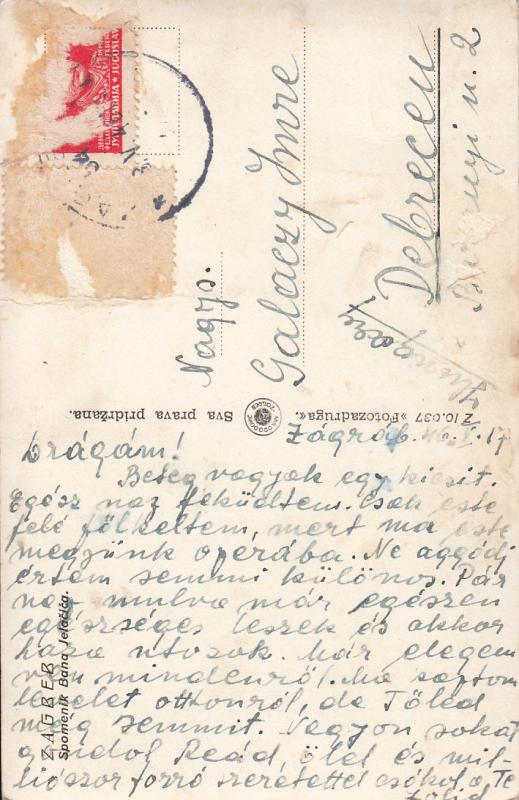 ДЕМ
ФЕДЕРАТ
ЈУГОСЛАВИЈА ★ JUGOSLAV
Nagys.
Galaczy Imre
Debrecen
u. 2
Z 10.037 »Fotozadruga« Sva prava pridržana.
ZAGREB
Spomenik Bana Jelačića.
Zágráb. 46. 17
Drágám!
Beteg vagyok egy kicsit.
Egész nap feküdtem. Csak este
felé fölkeltem, mert ma este
megyünk operába. Ne aggódj
értem semmi különös. Pár
nap mulva már egészen
egészséges leszek és akkor
haza utazok. Már elegem
van mindenről. Ma kaptam
levelet otthonról, de Tőled
még semmit. Nagyon sokat
gondol Reád, ölel és mil-
liószor forró szeretettel csókol a Te